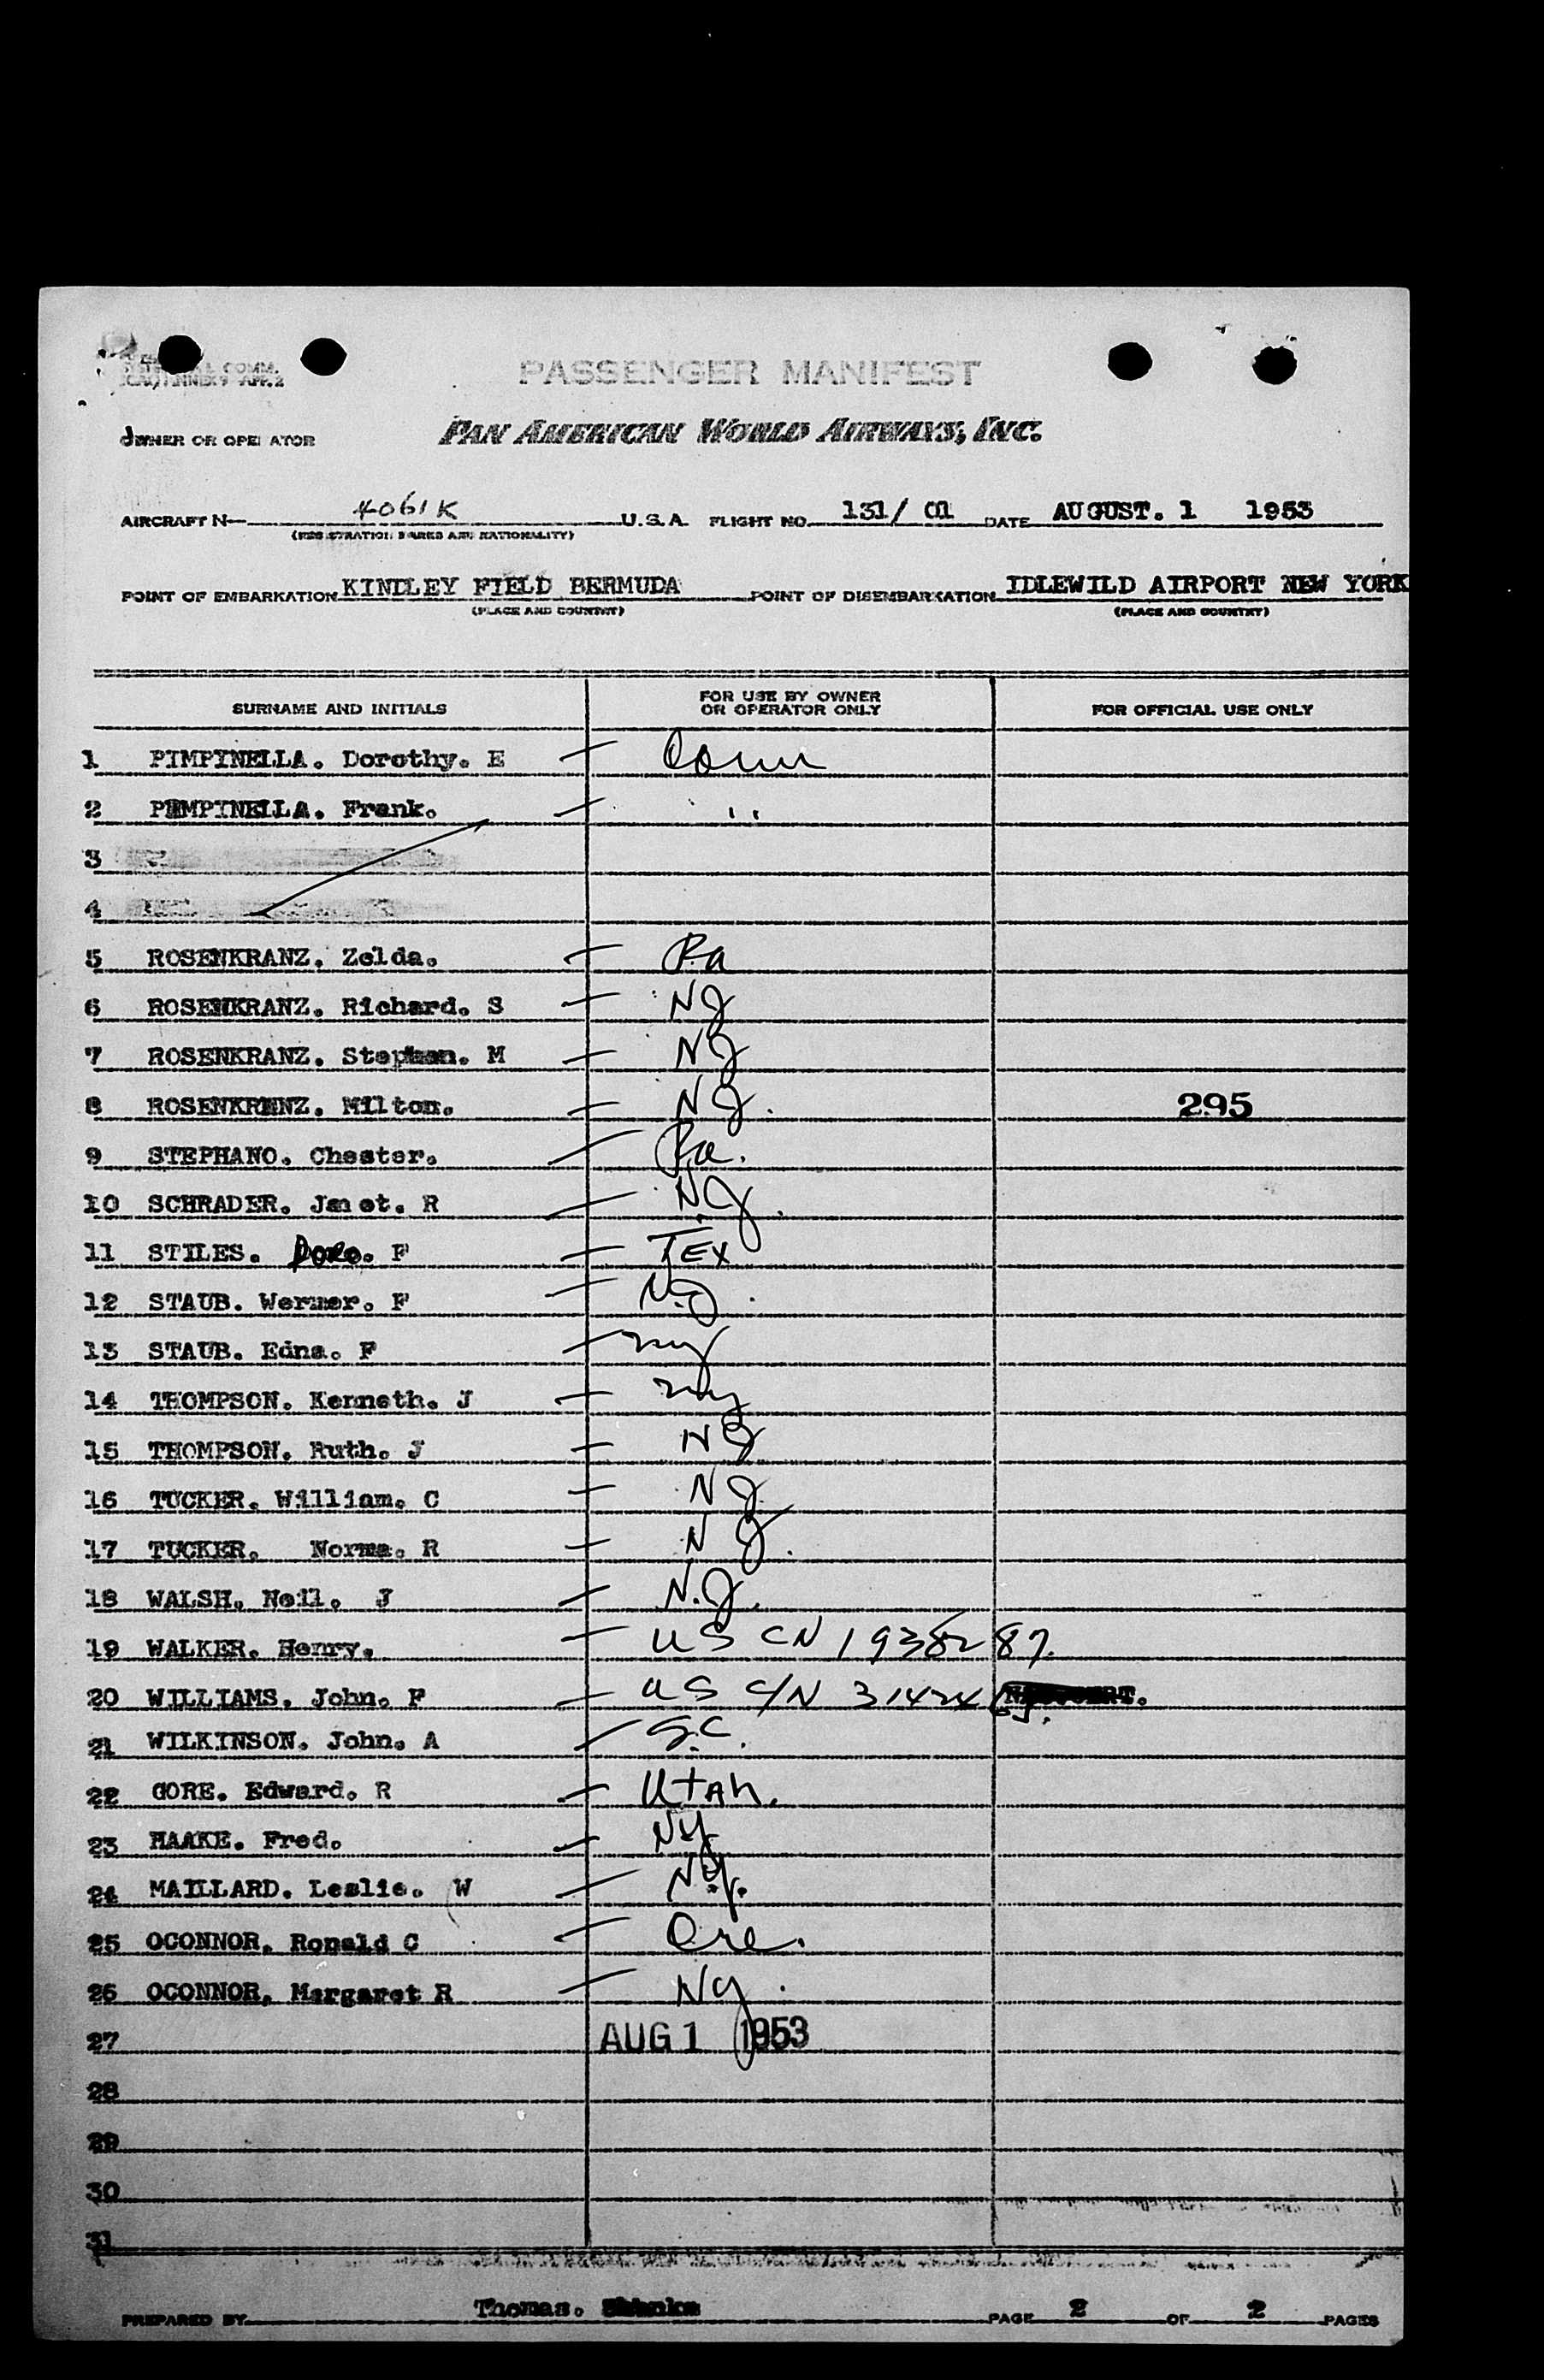 PASSENGER MANIFEST
OWNER OR OPERATOR PAN AMERICAN WORLD AIRWAYS, INC.
AIRCRAFT N— 4061K U.S.A. FLIGHT NO. 131/ 01 DATE AUGUST. 1 1953
(REGISTRATION MARKS AND NATIONALITY)
POINT OF EMBARKATION KINDLEY FIELD BERMUDA POINT OF DISEMBARKATION IDLEWILD AIRPORT NEW YORK
(PLACE AND COUNTRY) (PLACE AND COUNTRY)
SURNAME AND INITIALS FOR USE BY OWNER OR OPERATOR ONLY FOR OFFICIAL USE ONLY
1 PIMPINELLA. Dorothy. E Conn
2 PEMPINELLA. Frank. "
3
4
5 ROSENKRANZ. Zelda. Pa
6 ROSENKRANZ. Richard. S NJ
7 ROSENKRANZ. Stephen. M NJ
8 ROSENKRENZ. Milton. NJ. 295
9 STEPHANO. Chester. Pa.
10 SCHRADER. Janet. R N.J.
11 STILES. F TEX
12 STAUB. Werner. F N.J.
13 STAUB. Edna. F ny
14 THOMPSON. Kenneth. J ny
15 THOMPSON. Ruth. J NJ
16 TUCKER. William. C NJ
17 TUCKER. Norma. R NJ.
18 WALSH. Neil. J N.J.
19 WALKER. Henry. US CN 1938287.
20 WILLIAMS. John. F US C/N 31424
21 WILKINSON. John. A S.C.
22 GORE. Edward. R Utah.
23 HAAKE. Fred. NY
24 MAILLARD. Leslie. W N.Y.
25 OCONNOR. Ronald C Ore.
26 OCONNOR. Margaret R NY.
27 AUG 1 1953
28
29
30
31
PREPARED BY Thomas. PAGE 2 OF 2 PAGES